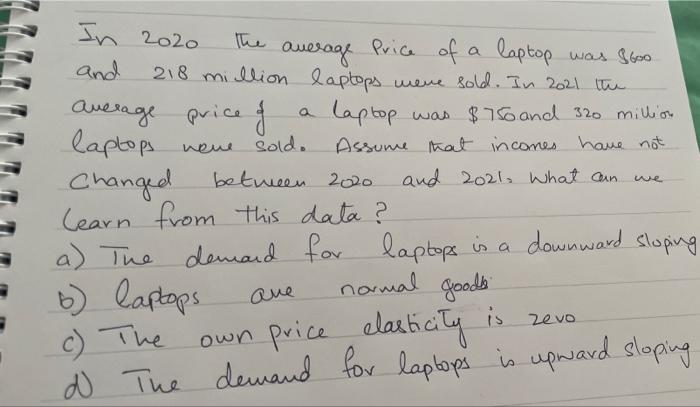 In 2020 the average Price of a laptop was $600
and 218 million laptops were sold. In 2021 the
average price of a laptop was $750 and 320 million
laptops were sold. Assume that incomes have not
changed between 2020 and 2021. What can we
learn from this data?
a) The demand for laptops is a downward sloping
b) laptops are normal goods.
c) The own price elasticity is zero
d) The demand for laptops is upward sloping